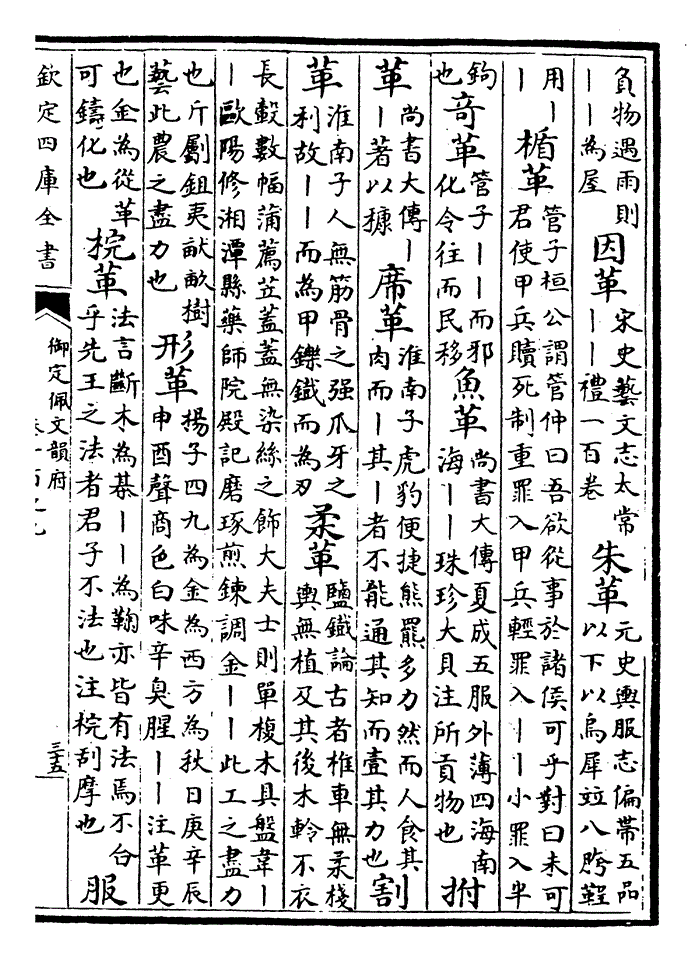 負物遇雨則——為屋 因革 宋史藝文志太常——禮一百卷 朱革 元史輿服志偏帶五品以下以烏犀竝八胯鞓
用—— 楯革 管子桓公謂管仲曰吾欲從事於諸侯可乎對曰未可君使甲兵贖死制重罪入甲兵輕罪入——小罪入半
鉤也 奇革 管子——而邪化令往而民移 魚革 尚書大傳夏成五服外薄四海南海——珠珍大貝注所貢物也 拊
革 尚書大傳——著以糠 席革 淮南子虎豹便捷熊羆多力然而人食其肉而—其—者不能通其知而壹其力也 割
革 淮南子人無筋骨之强爪牙之利故——而為甲鑠鐵而為刃 柔革 鹽鐵論古者椎車無柔棧輿無植及其後木軨不衣
長轂數幅蒲薦笠蓋蓋無染絲之飾大夫士則單榎木具盤韋——歐陽修湘潭縣藥師院殿記磨琢煎鍊調金——此工之盡力
也斤劚鉏夷畎畝樹藝此農之盡力也 形革 揚子四九為金為西方為秋日庚辛辰申酉聲商色白味辛臭腥——注革更
也金為從革可鑄化也 梡革 法言斷木為棊——為鞠亦皆有法焉不合乎先王之法者君子不法也注梡刮摩也 服
欽定四庫全書
御定佩文韻府
三五